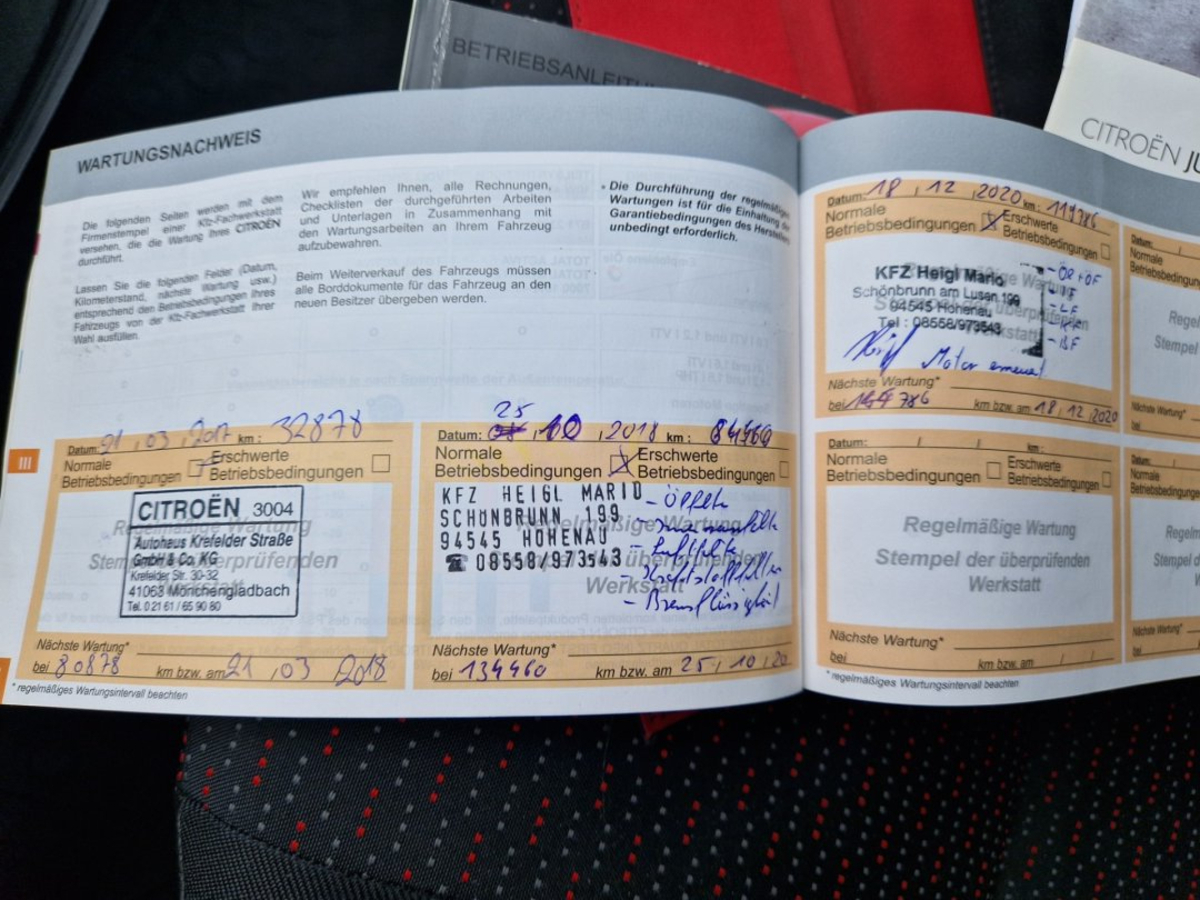 BETRIEBSANLEITU
CITROËN JU
WARTUNGSNACHWEIS
Die folgenden Seiten werden mit dem
Firmenstempel einer Kfz-Fachwerkstatt
versehen, die die Wartung Ihres CITROËN
durchführt.
Lassen Sie die folgenden Felder (Datum,
Kilometerstand, nächste Wartung usw.)
entsprechend den Betriebsbedingungen Ihres
Fahrzeugs von der Kfz-Fachwerkstatt Ihrer
Wahl ausfüllen.
Wir empfehlen Ihnen, alle Rechnungen,
Checklisten der durchgeführten Arbeiten
und Unterlagen in Zusammenhang mit
den Wartungsarbeiten an Ihrem Fahrzeug
aufzubewahren.
Beim Weiterverkauf des Fahrzeugs müssen
alle Borddokumente für das Fahrzeug an den
neuen Besitzer übergeben werden.
• Die Durchführung der regelmäßigen
Wartungen ist für die Einhaltung der
Garantiebedingungen des Herstellers
unbedingt erforderlich.
III
Datum: 21, 03, 2017 km: 32878
Normale Betriebsbedingungen
Erschwerte Betriebsbedingungen
CITROËN 3004
Autohaus Krefelder Straße
GmbH & Co. KG
Krefelder Str. 30-32
41063 Mönchengladbach
Tel. 0 21 61 / 65 90 80
Regelmäßige Wartung
Stempel der überprüfenden
Nächste Wartung*
bei 80878 km bzw. am 21, 03 2018
* regelmäßiges Wartungsintervall beachten
25
Datum: 10, 2018 km: 84460
Normale Betriebsbedingungen
Erschwerte Betriebsbedingungen
KFZ HEIGL MARIO
SCHÖNBRUNN 199
94545 HOHENAU
☎ 08558/973543
- Ölfilter
- Innenraumfilter
- Luftfilter
- Kraftstofffilter
- Bremsflüssigkeit
Werkstatt
Nächste Wartung*
bei 134460 km bzw. am 25, 10, 20
Datum: 18, 12, 2020 km: 114786
Normale Betriebsbedingungen
Erschwerte Betriebsbedingungen
KFZ Heigl Mario
Schönbrunn am Lusen 199
94545 Hohenau
Tel : 08558/973543
- ÖL+ÖF
- LF
- KF
- BF
Motor erneuert
Nächste Wartung*
km bzw. am 18, 12, 2020
Datum: / / km:
Normale Betriebsbedingungen
Erschwerte Betriebsbedingungen
Regelmäßige Wartung
Stempel der überprüfenden
Werkstatt
Nächste Wartung*
bei km bzw. am / /
* regelmäßiges Wartungsintervall beachten
Datum:
Normale
Betriebsbedingung
Rege
Stempel
Nächste Wartung*
bei
Datum:
Normale
Betriebsbedingung
Reg
Stempe
Nächste Wartung*
bei